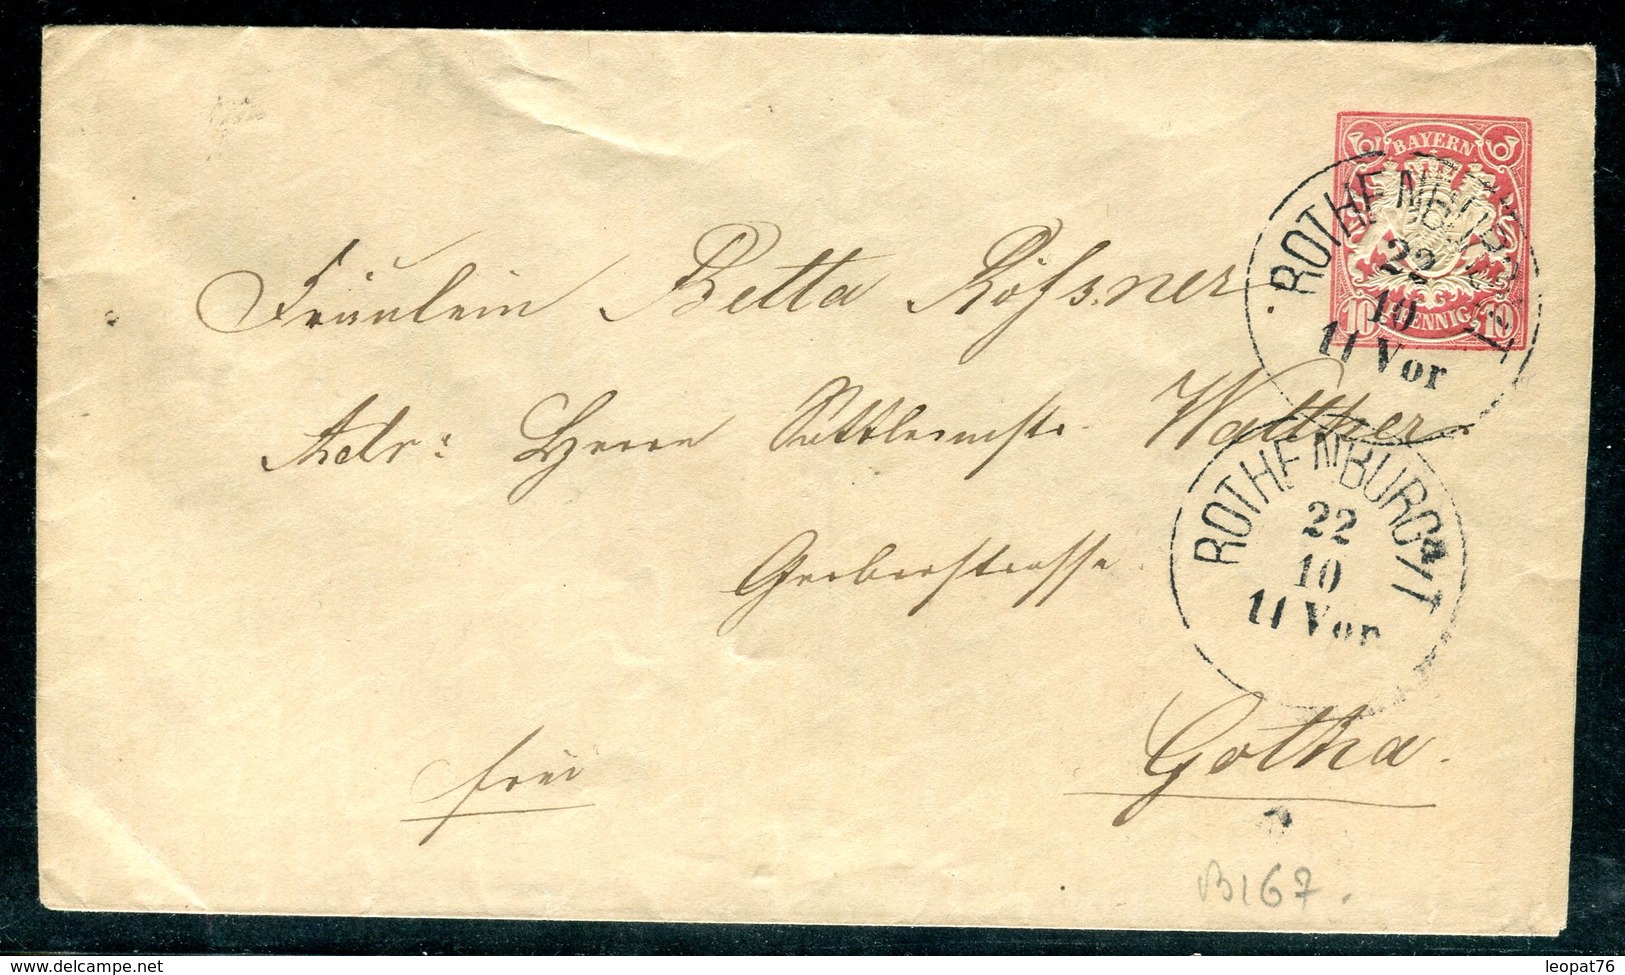 BAYERN
10 PFENNIG 10
ROTHENBURG a/T
22
10
11 Vor
Fräulein Betta Rößner
Adr: Herrn Sattlermstr. Walther
ROTHENBURG a/T
22
10
11 Vor
Gerberstrasse.
Gotha.
frei
B167.
delcampe.net
leopat76